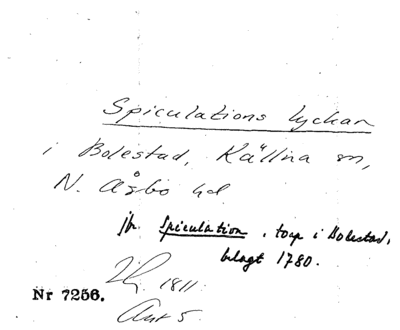 Spiculations lyckan
i Bolestad, Källna sn,
N. Åsbo hd.
jfr Spiculation, torp i Bolestad,
belagt 1780.
1811.
Nr 7256.
Akt 5